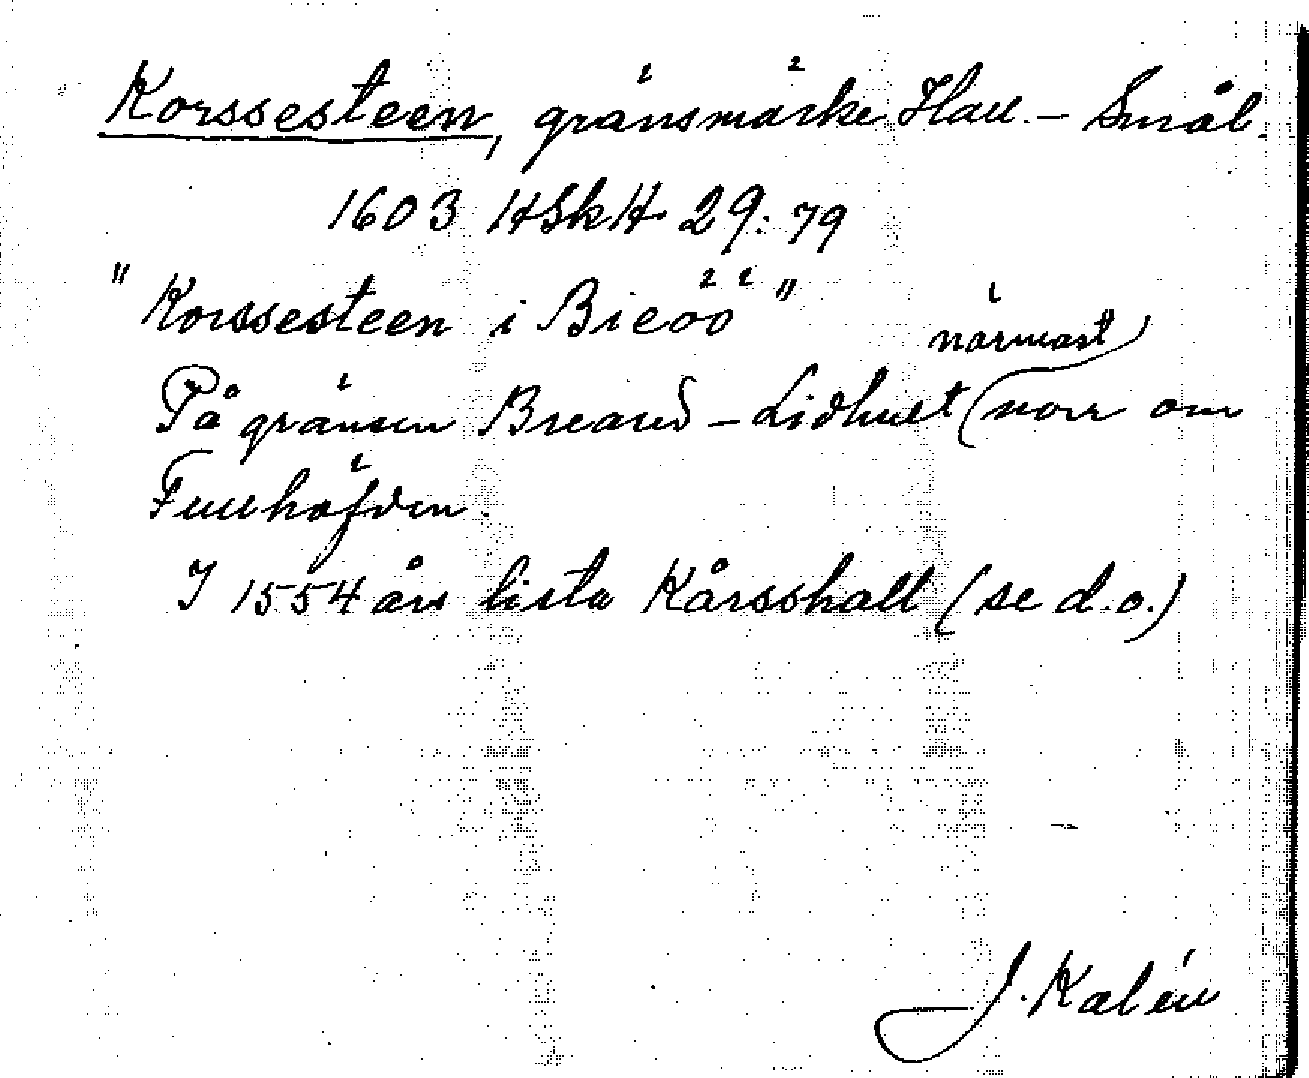 Korssesteen, gränsmärke Hall. - Smål.
1603 HSkH 29:79
"Korssesteen i Bieöö"
närmast
På gränsen Breared - Lidhult (norr om
Fullhöfden.
I 1554 års lista Kårsshall (se d.o.)
J. Kalén